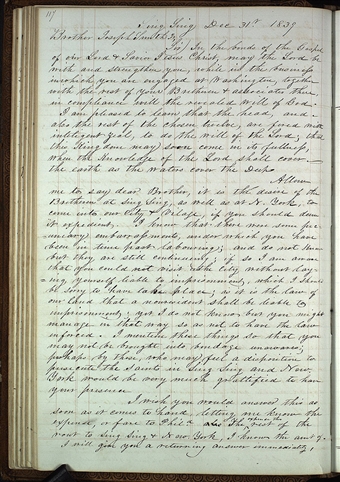 117
Sing Sing Dec 31st 1839
Brother Joseph Smith Jr.
Sir/ In the bonds of the Gospel
of our Lord & Savior Jesus Christ, may the Lord be
with and strengthen you, while in the business
in which you are engaged at Washington, together
with the rest of your Brethren & associates there
in compliance with the revealed will of God.
I am pleased to learn that the head, and
also the rest of the chosen tribe, are fired with
intelligent zeal, to do the will of the Lord; that
this King dom may soon come in its fullness,
when the Knowledge of the Lord shall cover
the earth as the waters cover the Deep.
Allow
me to say dear Brother, it is the desire of the
Brethren at Sing Sing, as well as at N. York, to
come into our City & Village, if you should deem
it expedient. I know that there were some pe-
cuniary embarrassments, under which you have
been in time past labouring; and do not know
but they are still continuing; if so I am aware
that you could not visit the City without lay-
ing yourself liable to imprisonment, which I should
be sorry to have take place; as it is the law of
our land that a nonresident shall be liable to
imprisonment; yet I do not know but you might
manage in that way so as not to have the law
enforced. I mention these things so that you
may not be brought into bondage unawares;
perhaps by those, who may feel a disposition to
persecute the Saints in Sing Sing and New
York would be very much gratified to have
your presence
I wish you would answer this as
soon as it comes to hand, letting me know the
expense, or fare to Phila. also the expense of the rest of the
rout to Sing Sing & New York, I know the amt of.
I will give you a returning answer immediately,